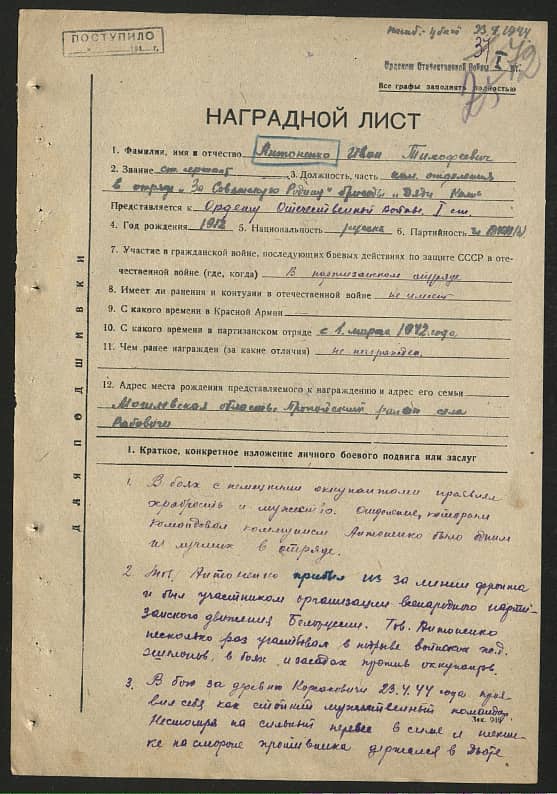 ПОСТУПИЛО
погиб - убит 23.4.1944
Орденом Отечественной Войны I ст.
Все графы заполнять полностью
НАГРАДНОЙ ЛИСТ
1. Фамилия, имя и отчество Антоненко Иван Тимофеевич
2. Звание ст. сержант 3. Должность, часть ком. отделения
в отряде „За Советскую Родину" бригады „Дяди Коли"
Представляется к Ордену Отечественной Войны I ст.
4. Год рождения 1912 5. Национальность 6. Партийность
7. Участие в гражданской войне, последующих боевых действиях по защите СССР в оте-
чественной войне (где, когда) В партизанском отряде
8. Имеет ли ранения и контузии в отечественной войне не имеет
9. С какого времени в Красной Армии
10. С какого времени в партизанском отряде с 1. марта 1942. года
11. Чем ранее награжден (за какие отличия) не награжден.
12. Адрес места рождения представляемого к награждению и адрес его семьи
Могилевская область, Пропойский район села
Рабовичи
1. Краткое, конкретное изложение личного боевого подвига или заслуг
1. В боях с немецкими оккупантами проявил
храбрость и мужество. Отделение, которым
командовал коммунист Антоненко было одним
из лучших в отряде.
2. Тов. Антоненко прибыл из за линии фронта
и был участником организации всенародного парти-
занского движения Белоруссии. Тов. Антоненко
несколько раз участвовал в подрыве воинских
эшелонов, в боях и засадах против оккупантов.
3. В бою за деревню 23.4.44 года проя-
вил себя как стойкий мужественный командир.
Зак. 918
Несмотря на сильный перевес в силе и
ке на стороне противника держался в
ДЛЯ ПОДШИВКИ